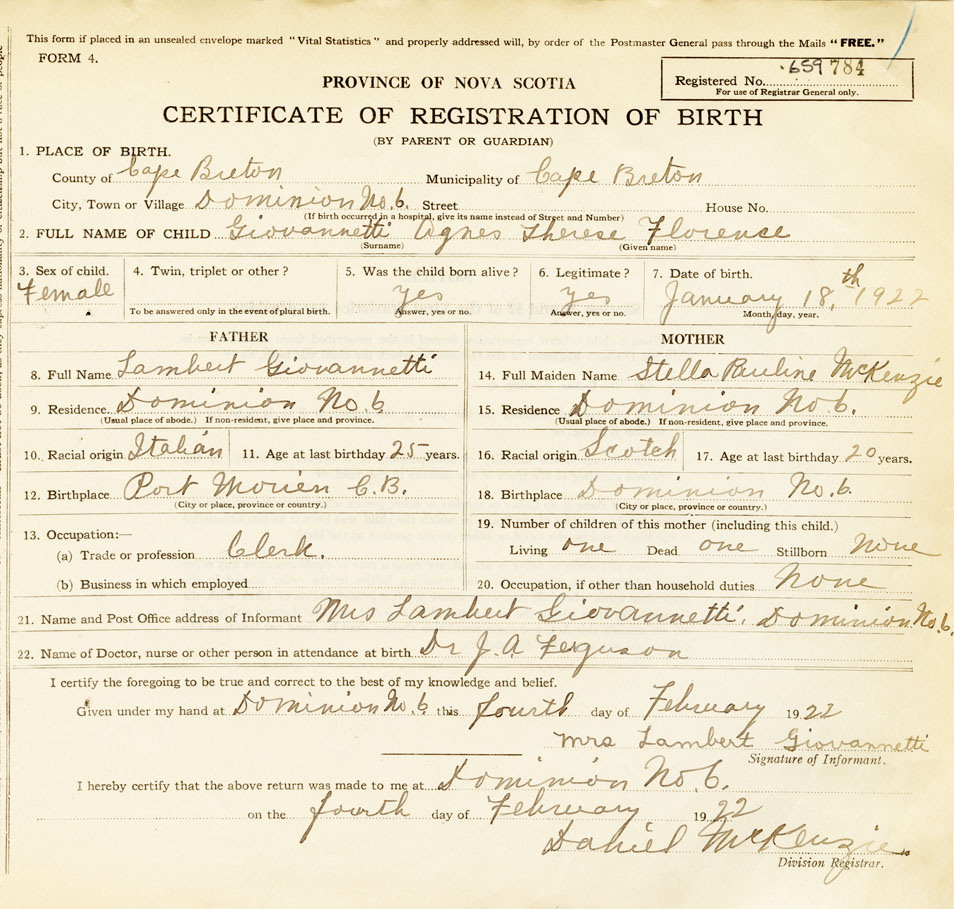 This form if placed in an unsealed envelope marked "Vital Statistics" and properly addressed will, by order of the Postmaster General pass through the Mails "FREE."
FORM 4.
659 784
Registered No.
For use of Registrar General only.
PROVINCE OF NOVA SCOTIA
CERTIFICATE OF REGISTRATION OF BIRTH
(BY PARENT OR GUARDIAN)
1. PLACE OF BIRTH.
County of Cape Breton Municipality of Cape Breton
City, Town or Village Dominion No. 6. Street House No.
(If birth occurred in a hospital, give its name instead of Street and Number)
2. FULL NAME OF CHILD Giovannetti Agnes Therese Florence
(Surname) (Given name)
3. Sex of child. 4. Twin, triplet or other? 5. Was the child born alive? 6. Legitimate? 7. Date of birth.
Female yes yes January 18th, 1922
To be answered only in the event of plural birth. Answer, yes or no. Answer, yes or no. Month, day, year.
FATHER MOTHER
8. Full Name Lambert Giovannetti 14. Full Maiden Name Stella Pauline McKenzie
9. Residence Dominion No. 6 15. Residence Dominion No 6.
(Usual place of abode.) If non-resident, give place and province. (Usual place of abode.) If non-resident, give place and province.
10. Racial origin Italian 11. Age at last birthday 25 years. 16. Racial origin Scotch 17. Age at last birthday 20 years.
12. Birthplace Port Morien C.B. 18. Birthplace Dominion No. 6.
(City or place, province or country.) (City or place, province or country.)
13. Occupation:— 19. Number of children of this mother (including this child.)
(a) Trade or profession Clerk. Living one Dead one Stillborn None
(b) Business in which employed 20. Occupation, if other than household duties None
21. Name and Post Office address of Informant Mrs Lambert Giovannetti, Dominion No. 6.
22. Name of Doctor, nurse or other person in attendance at birth Dr J. A Ferguson
I certify the foregoing to be true and correct to the best of my knowledge and belief.
Given under my hand at Dominion No. 6 this fourth day of February 1922
Mrs Lambert Giovannetti
Signature of Informant.
I hereby certify that the above return was made to me at Dominion No 6.
on the fourth day of February 1922
Daniel McKenzie
Division Registrar.